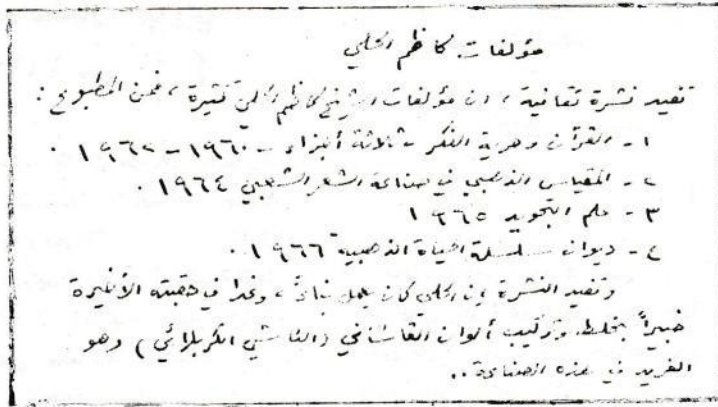 مؤلفات كاظم الحلي
تفيد نشرة ثقافية، ان مؤلفات الشيخ كاظم الحلي كثيرة، فمن المطبوع:
١- القرآن وحرية الفكر - ثلاثة أجزاء - ١٩٦٠ - ١٩٦٢ .
٢- المقياس الذهبي في صناعة الشعر الشعبي ١٩٦٤ .
٣- علم التجويد ١٩٦٥
٤- ديوان سلسلة الحياة الذهبية ١٩٦٦ .
وتفيد النشرة ان الحلي كان يعمل بناءً، وغدا في حقبته الأخيرة
خبيراً بخلط وتركيب ألوان القاشاني (الكاشي الكربلائي) وهو
الفريد في هذه الصناعة..